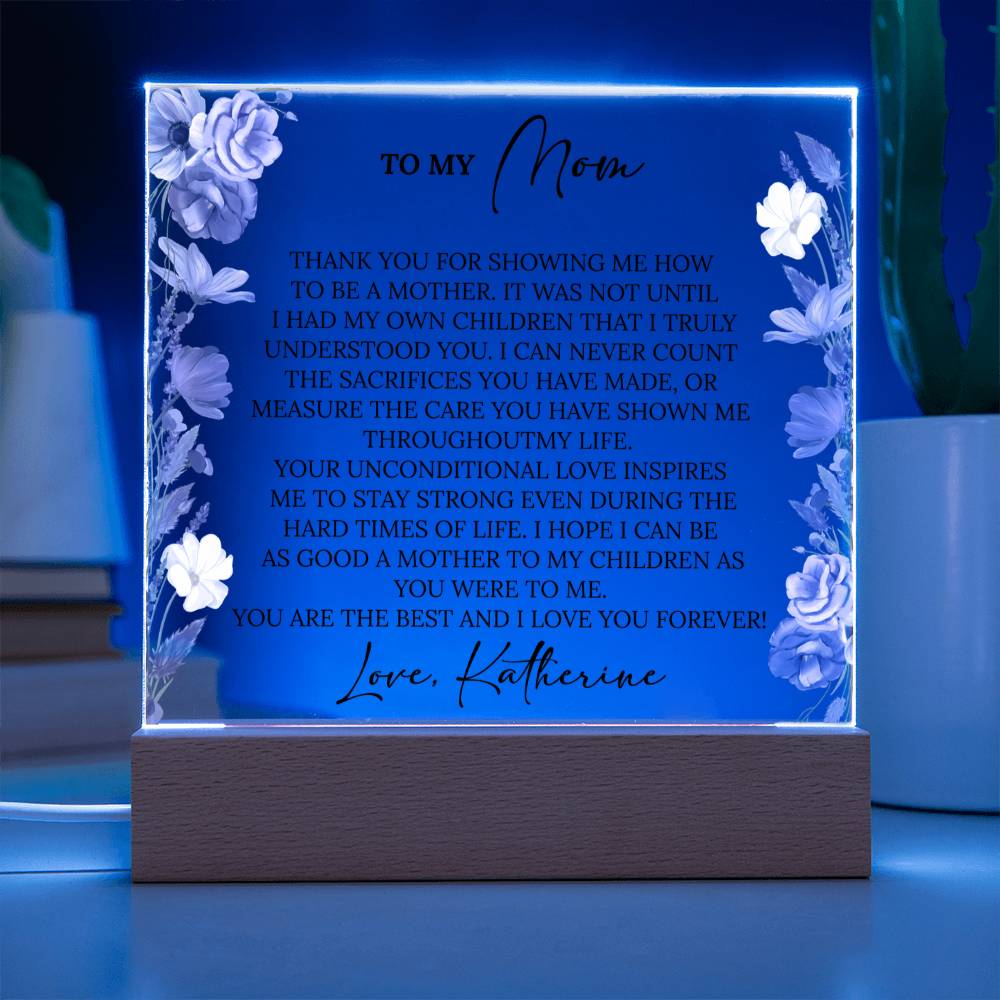 TO MY Mom
THANK YOU FOR SHOWING ME HOW
TO BE A MOTHER. IT WAS NOT UNTIL
I HAD MY OWN CHILDREN THAT I TRULY
UNDERSTOOD YOU. I CAN NEVER COUNT
THE SACRIFICES YOU HAVE MADE, OR
MEASURE THE CARE YOU HAVE SHOWN ME
THROUGHOUTMY LIFE.
YOUR UNCONDITIONAL LOVE INSPIRES
ME TO STAY STRONG EVEN DURING THE
HARD TIMES OF LIFE. I HOPE I CAN BE
AS GOOD A MOTHER TO MY CHILDREN AS
YOU WERE TO ME.
YOU ARE THE BEST AND I LOVE YOU FOREVER!
Love, Katherine